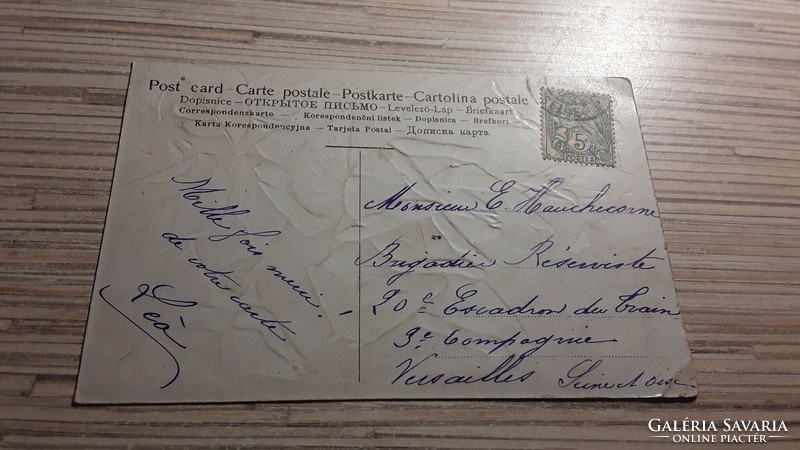 Post card – Carte postale – Postkarte – Cartolina postale
Dopisnice – ОТКРЫТОЕ ПИСЬМО – Levelező-Lap. – Briefkaart
Correspondenzkarte – Korespondenční lístek – Dopisnica – Brefkort
Karta Korespondencyjna – Tarjeta Postal – Дописна карта
5
POSTES
Mille fois merci
de votre carte
Léa
Monsieur E. Hauchecorne
Brigadier Réserviste
20e Escadron du Train
3e Compagnie
Versailles Seine et Oise
GALÉRIA SAVARIA
ONLINE PIACTÉR